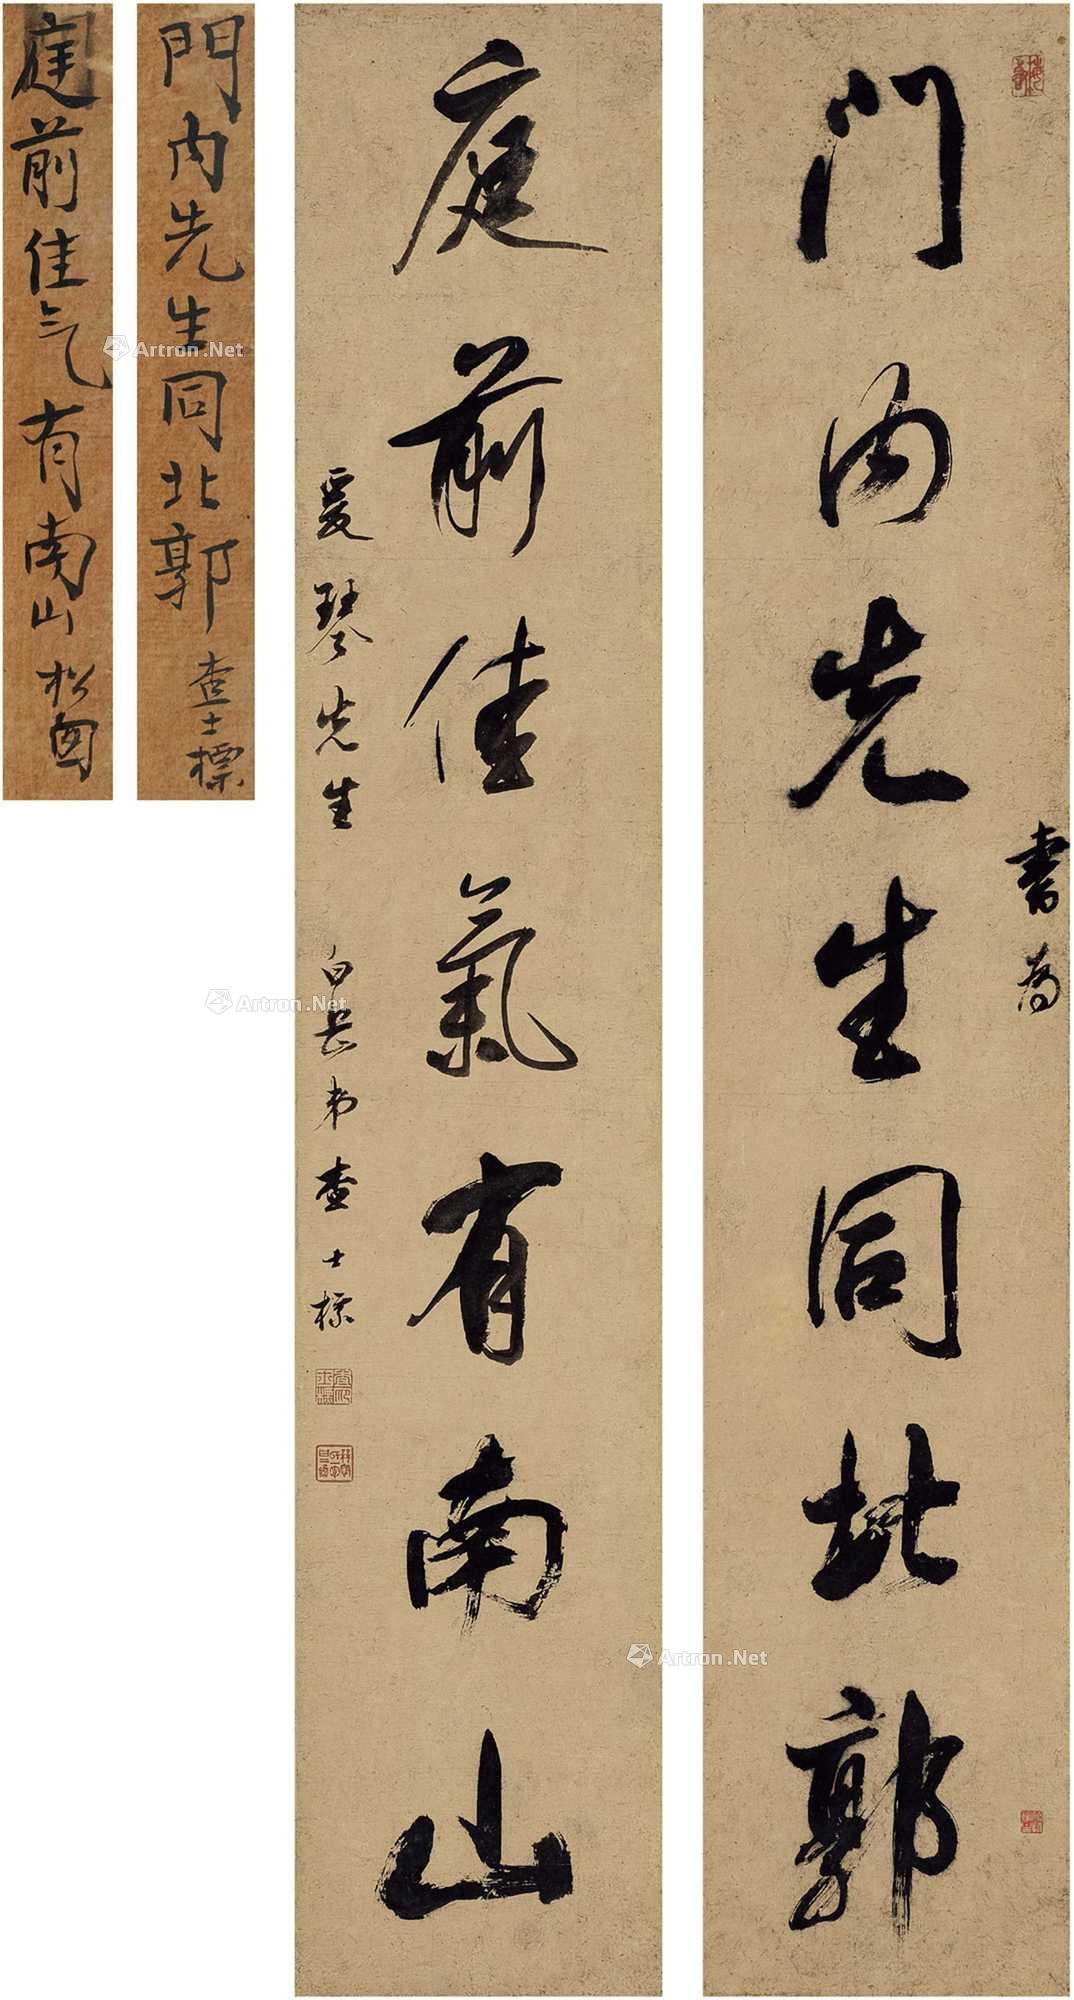 門内先生同北郭
書為
庭前佳氣有南山
爰琴先生 白岳弟查士標
門内先生同北郭 查士標
庭前佳气有南山 松窗
Artron.Net
Artron.Net
Artron.Net